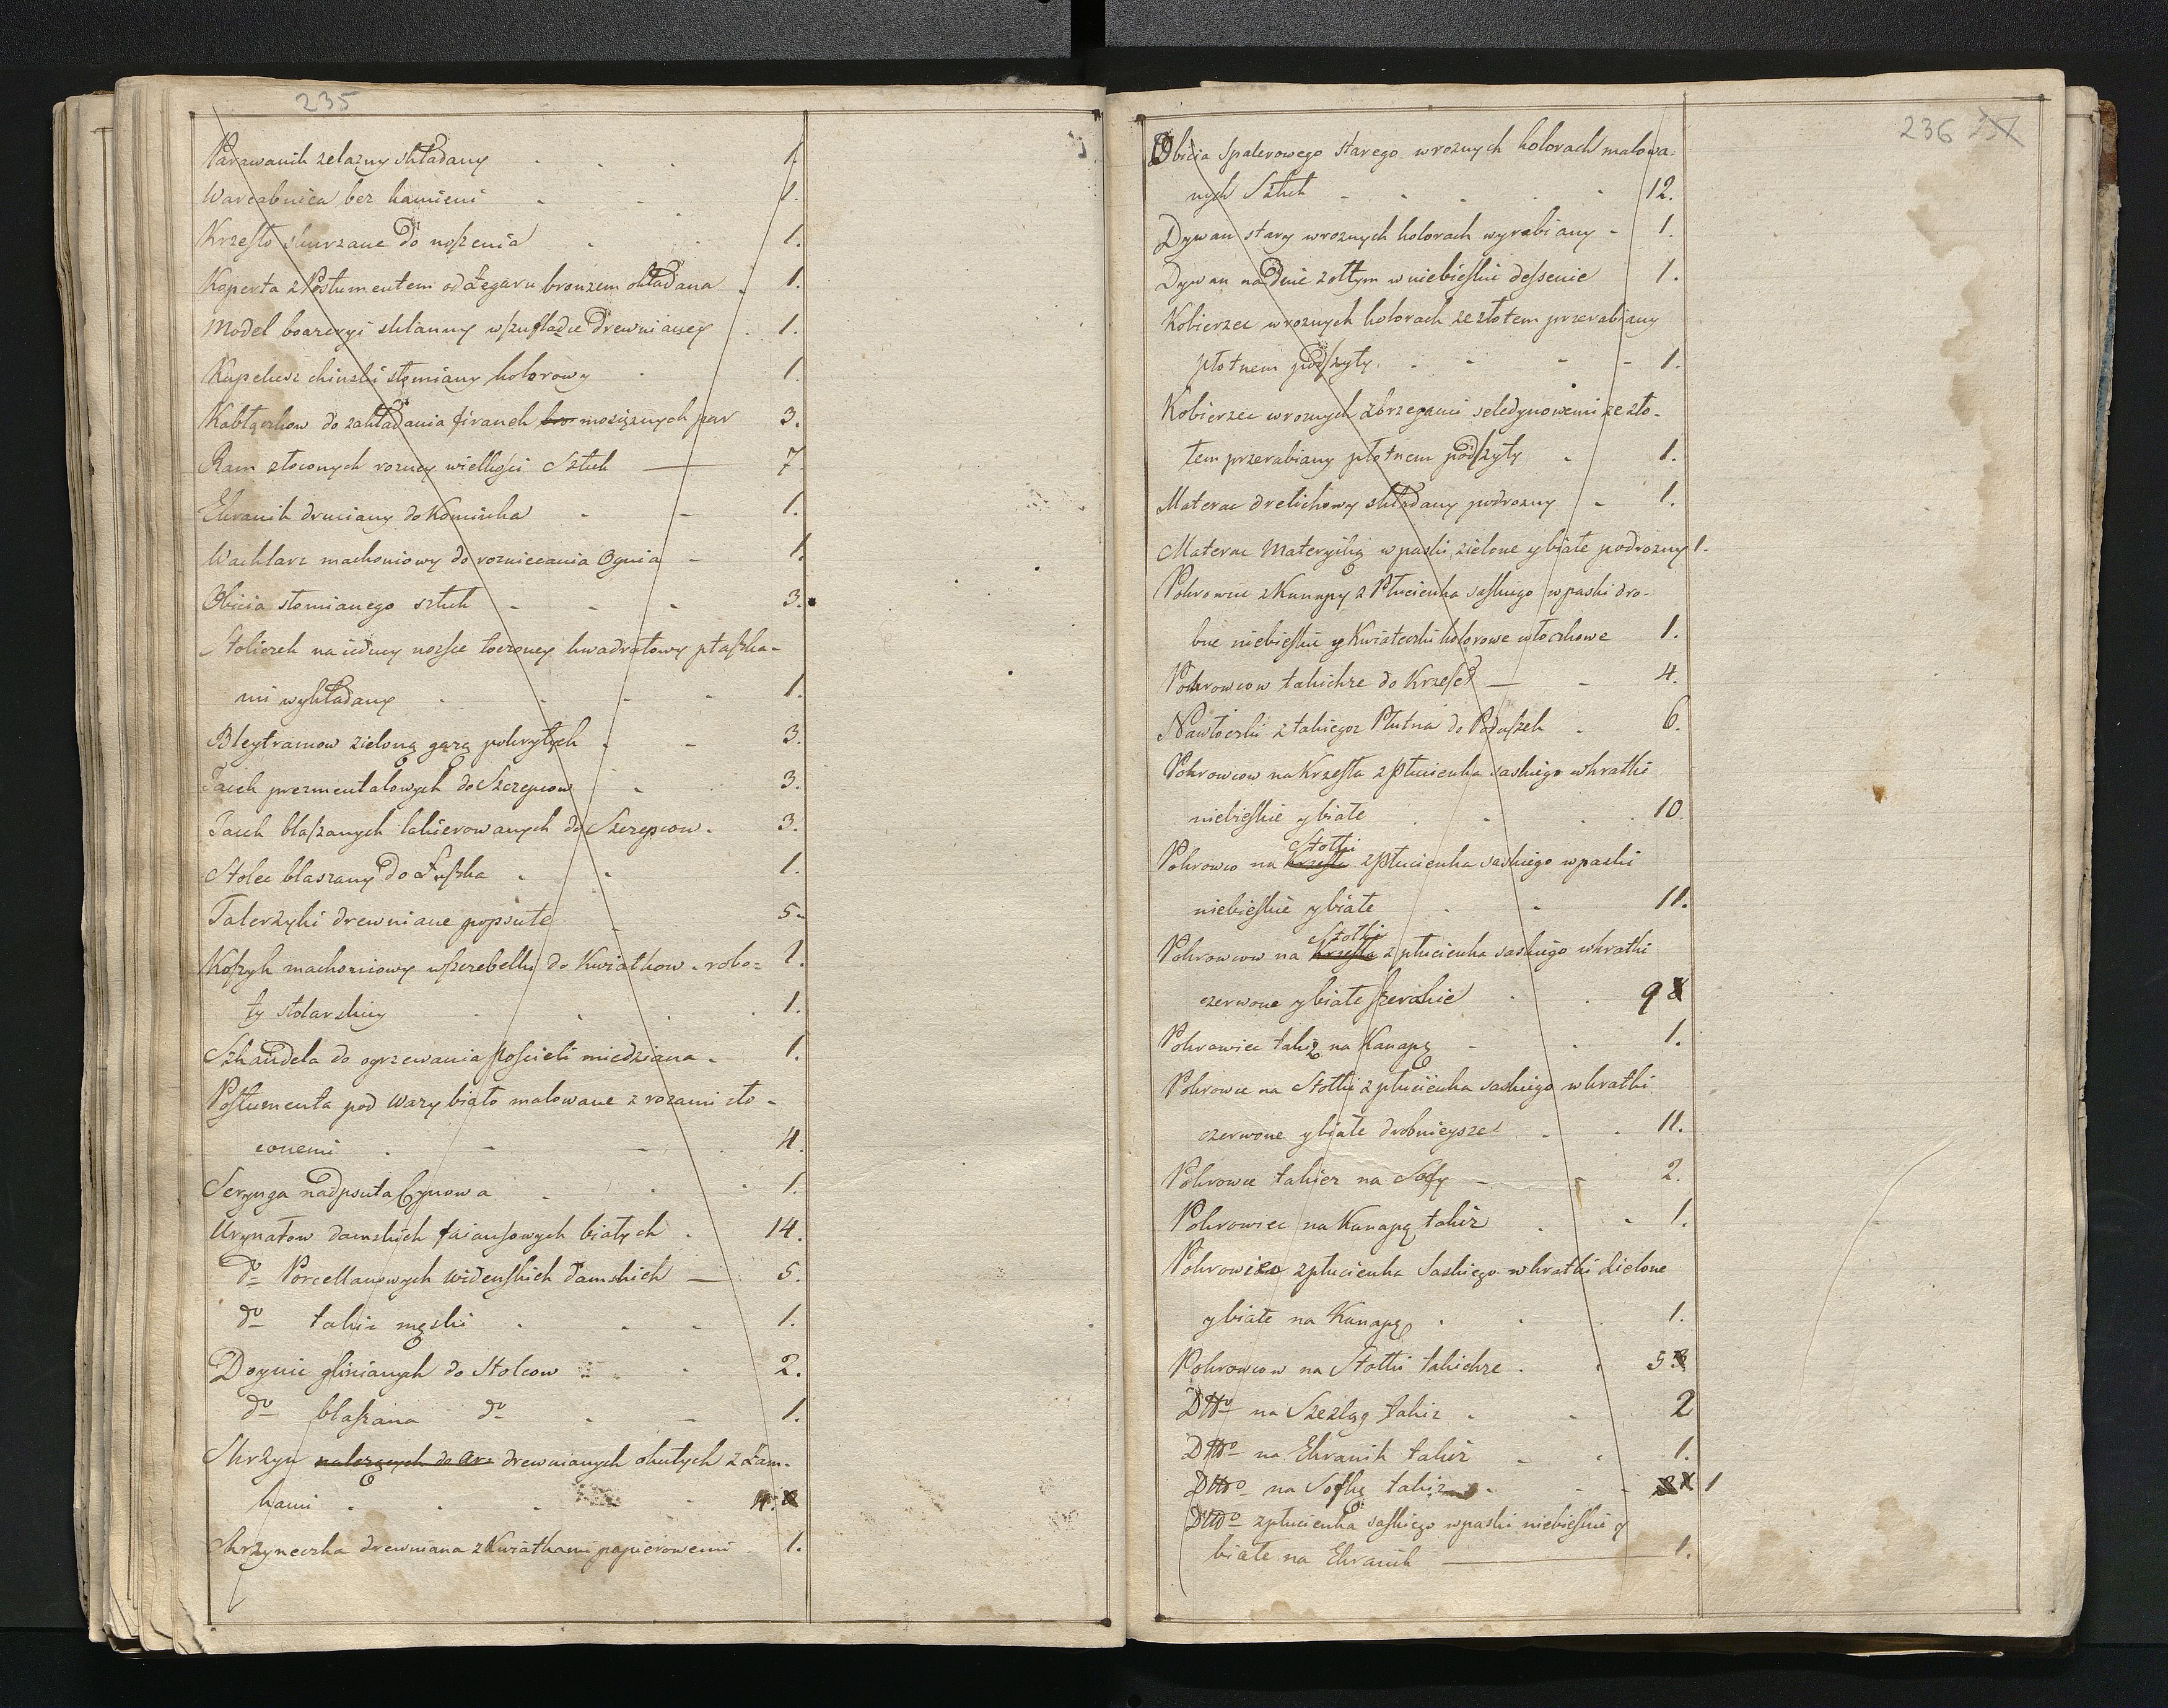 235
Parawanik zelazny składany 1.
Warcabnica bez kamieni 1.
Krzesło skurzane do noszenia 1.
Koperta z Postumentem od Zegaru bronzem okładana 1.
Model szklanny w szufladzie drewnianey 1.
Kapelusz chinski słomiany kolorowy 1.
Kabłączkow do zakładania firanek mosiążnych par 3.
Ram złoconych rozney wielkości Sztuk 7.
Ekranik druciany do Kominka 1.
Wachlarz machoniowy do rozniecania Ognia 1.
Obicia słomianego sztuk 3.
Stoliczek na iedney nozce toczoney kwadratowy ptaszka-
mi wykładany 1.
Bleytramow zieloną gazą pokrytych 3.
Tacek prezmentalowych do Szczepcow 3.
Tacek blaszanych lakierowanych do Szczepcow. 3.
Stolec blaszany do Łuszka 1.
Talerzyki drewniane popsute 5.
Koszyk machoniowy w szczebelki do Kwiatkow. robo= 1.
ty stolarskiey 1.
Szkandela do ogrzewania poscieli miedziana 1.
Postumenta pod Wazy biało malowane z rozami zło-
conemi 4.
Serynga nadpsuta Cynowa 1.
Urynałow damskich faiansowych białych 14.
do Porcellanowych widenskich damskich 5.
do takiz męski 1.
Doynic glinianych do Stolcow 2.
do blaszana do 1.
Skrzyn nalezących do drewnianych okutych z Zam-
kami 4.
Skrzyneczka drewniana z Kwiatkami papierowemi 1.
236 237
Obicia Spalerowego starego w roznych kolorach malowa-
nych Sztuk 12.
Dywan stary w roznych kolorach wyrabiany 1.
Dywan na dnie zołtym w niebieskie dessenie 1.
Kobierzec w roznych kolorach ze złotem przerabiany
płotnem podszyty 1.
Kobierzec w roznych z brzegami seledynowemi ze zło-
tem przerabiany płotnem podszyty 1.
Materac drelichowy składany podrozny 1.
Materac Materyiką w paski zielone y białe podrozny 1.
Pokrowiec z Kanapy z Płucienka saskiego w paski dro-
bne niebieskie y Kwiateczki kolorowe włoczkowe 1.
Pokrowcow takichze do Krzeseł 4.
Nawłoczki z takiegoz Płutna do Poduszek 6.
Pokrowcow na Krzesła z płucienka saskiego w kratki
niebieskie y białe 10.
Stołki
Pokrowco na krzesła z płucienka saskiego w paski
niebieskie y białe 11.
Stołki
Pokrowcow na krzesła z płucienka saskiego w kratki
czerwone y białe szerokie 9 8
Pokrowiec takiz na Kanapę 1.
Pokrowce na Stołki z płucienka saskiego w kratki
czerwone y białe drobnieysze 11.
Pokrowce takiez na Sofy 2.
Pokrowiec na Kanapę takiz 1.
Pokrowiec z płucienka Saskiego w kratki Zielone
y białe na Kanapę 1.
Pokrowcow na Stołki takichze 5.
Dtto na Szezląg takiz 2
Dtto na Ekranik takiz 1.
Dtto na Sofkę takiz 1
Dtto z płucienka saskiego w paski niebieskie y
białe na Ekranik 1.